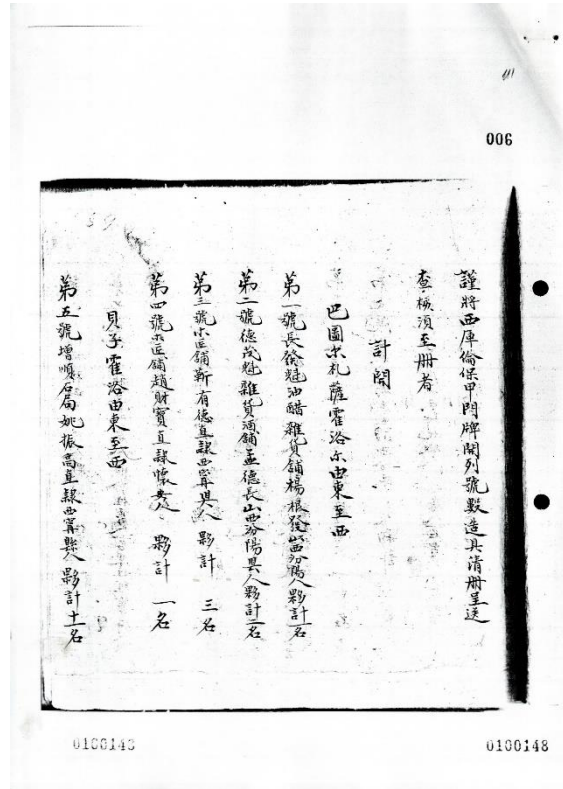 006
謹將西庫倫保甲門牌開列號數造具清册呈送
查核須至册者
計開
巴圖尔札薩霍洛尔由東至西
第一號長發魁油醋雜貨舖楊根發山西汾陽人夥計一名
第二號德茂魁雜貨酒舖孟德長山西汾陽县人夥計二名
第三號木匠舖靳有德直隸西寧县人 夥計 三名
第四號木匠舖趙財寳直隸懷安人 夥計 一名
貝子霍洛由東至西
第五號增順石局姚振高直隸西寧縣人夥計十一名
0100148
0100148